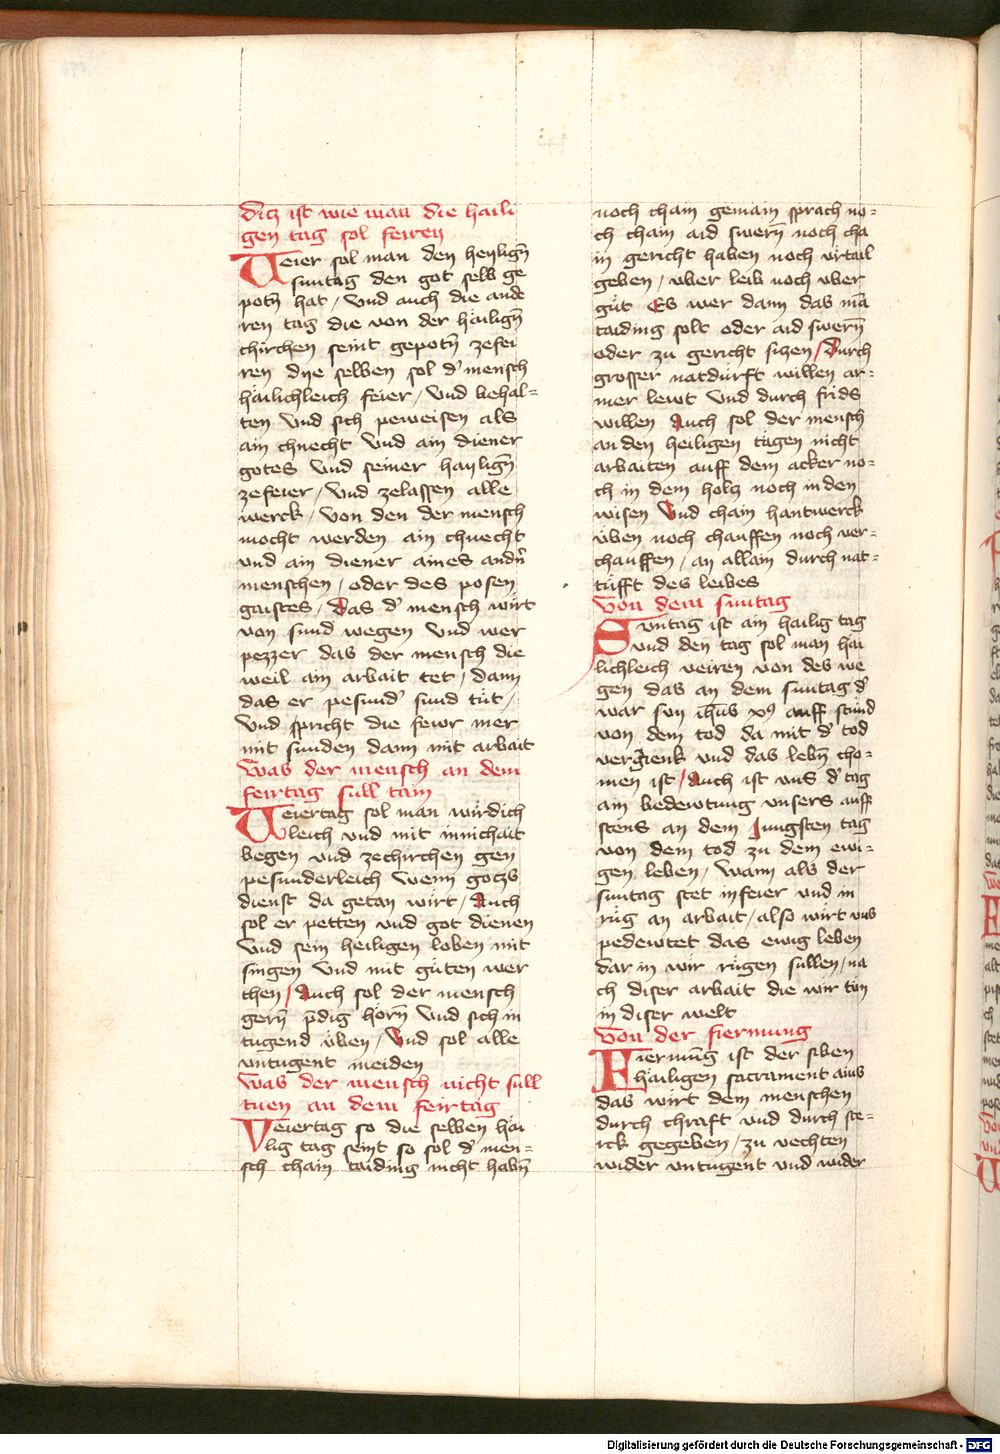 Ditz ist wie man die haili
gen tag sol feiren
Veier sol man den heyligñ
suntag den got selb ge
potñ hat / vnd auch die ande
ren tag die von der häiligñ
chirchen seint gepotñ zefei
ren dye selben sol d' mensch
häilichleich feier / vnd behal-
ten vnd sich peweisen als
ain chnecht vnd ain diener
gotes vnd seiner hayligñ
zefeier / vnd zelassen alle
werck / von den der mensch
mocht werden ain chnecht
vnd ain diener aines andñ
menschen / oder des posen
gaistes / Das d' mensch wirt
von sund wegen vnd wer
pezzer das der mensch die
weil ain arbait tet / dann
das er pesund' sund tüt /
vnd spricht die feior mer
mit sunden dann mit arbait
Was der mensch an dem
feirtag sull tain
Veiertag sol man wirdich
leich vnd mit innichait
begen vnd zechirchen gen
pesunderleich wenn gotzs
dienst da getan wirt / Auch
sol er petten vnd got dienen
vnd sein heiligen loben mit
singen vnd mit güten wer
chen / Auch sol der mensch
gerñ p̄dig hörñ vnd sich in
tugend üben / Vnd sol alle
vntugent meiden
Was der mensch nicht sull
tuen an dem feirtag
Veiertag so die selben häi
lig tag seint so sol d' men-
sch chain taiding nicht habñ
noch chain gemain sprach no-
ch chain aid swerñ noch cha
in gericht haben noch vrtail
geben / vber leib noch vber
güt Es wer dann das mā
taiding solt oder aid swerñ
oder zu gericht sizen / Durch
grosser natdürft willen ar-
mer lewt vnd durch frids
willen Auch sol der mensch
an den heiligen tägen nicht
arbaiten auff dem acker no-
ch in dem holtz noch in den
wisen Vnd chain hantwerck
üben noch chauffen noch ver-
chauffen / an allain durch nat-
tüfft des leibes
Von dem suntag
Suntag ist ain hailig tag
vnd den tag sol man hai
lichleich veiren von des we
gen das an dem suntag d'
war sun ihūs xp̄s auff stund
von dem tod da mit d' tod
vergienk vnd das lebñ cho-
men ist / Auch ist vns d' tag
ain bedewtung vnsers auff
stens an dem Jungsten tag
von dem tod zu dem ewi-
gen leben / Wann als der
suntag stet in feier vnd in
rüg an arbait / also wirt vns
pedewtet das ewig leben
dar in wir rügen sullen / na
ch diser arbait die wir tün
in diser welt
Von der fiermung
Fiermūg ist der siben
häiligen sacrament ains
das wirt dem menschen
durch chraft vnd durch ste-
rck gegeben / zu vechten
wider vntugent vnd wider
Digitalisierung gefördert durch die Deutsche Forschungsgemeinschaft - DFG